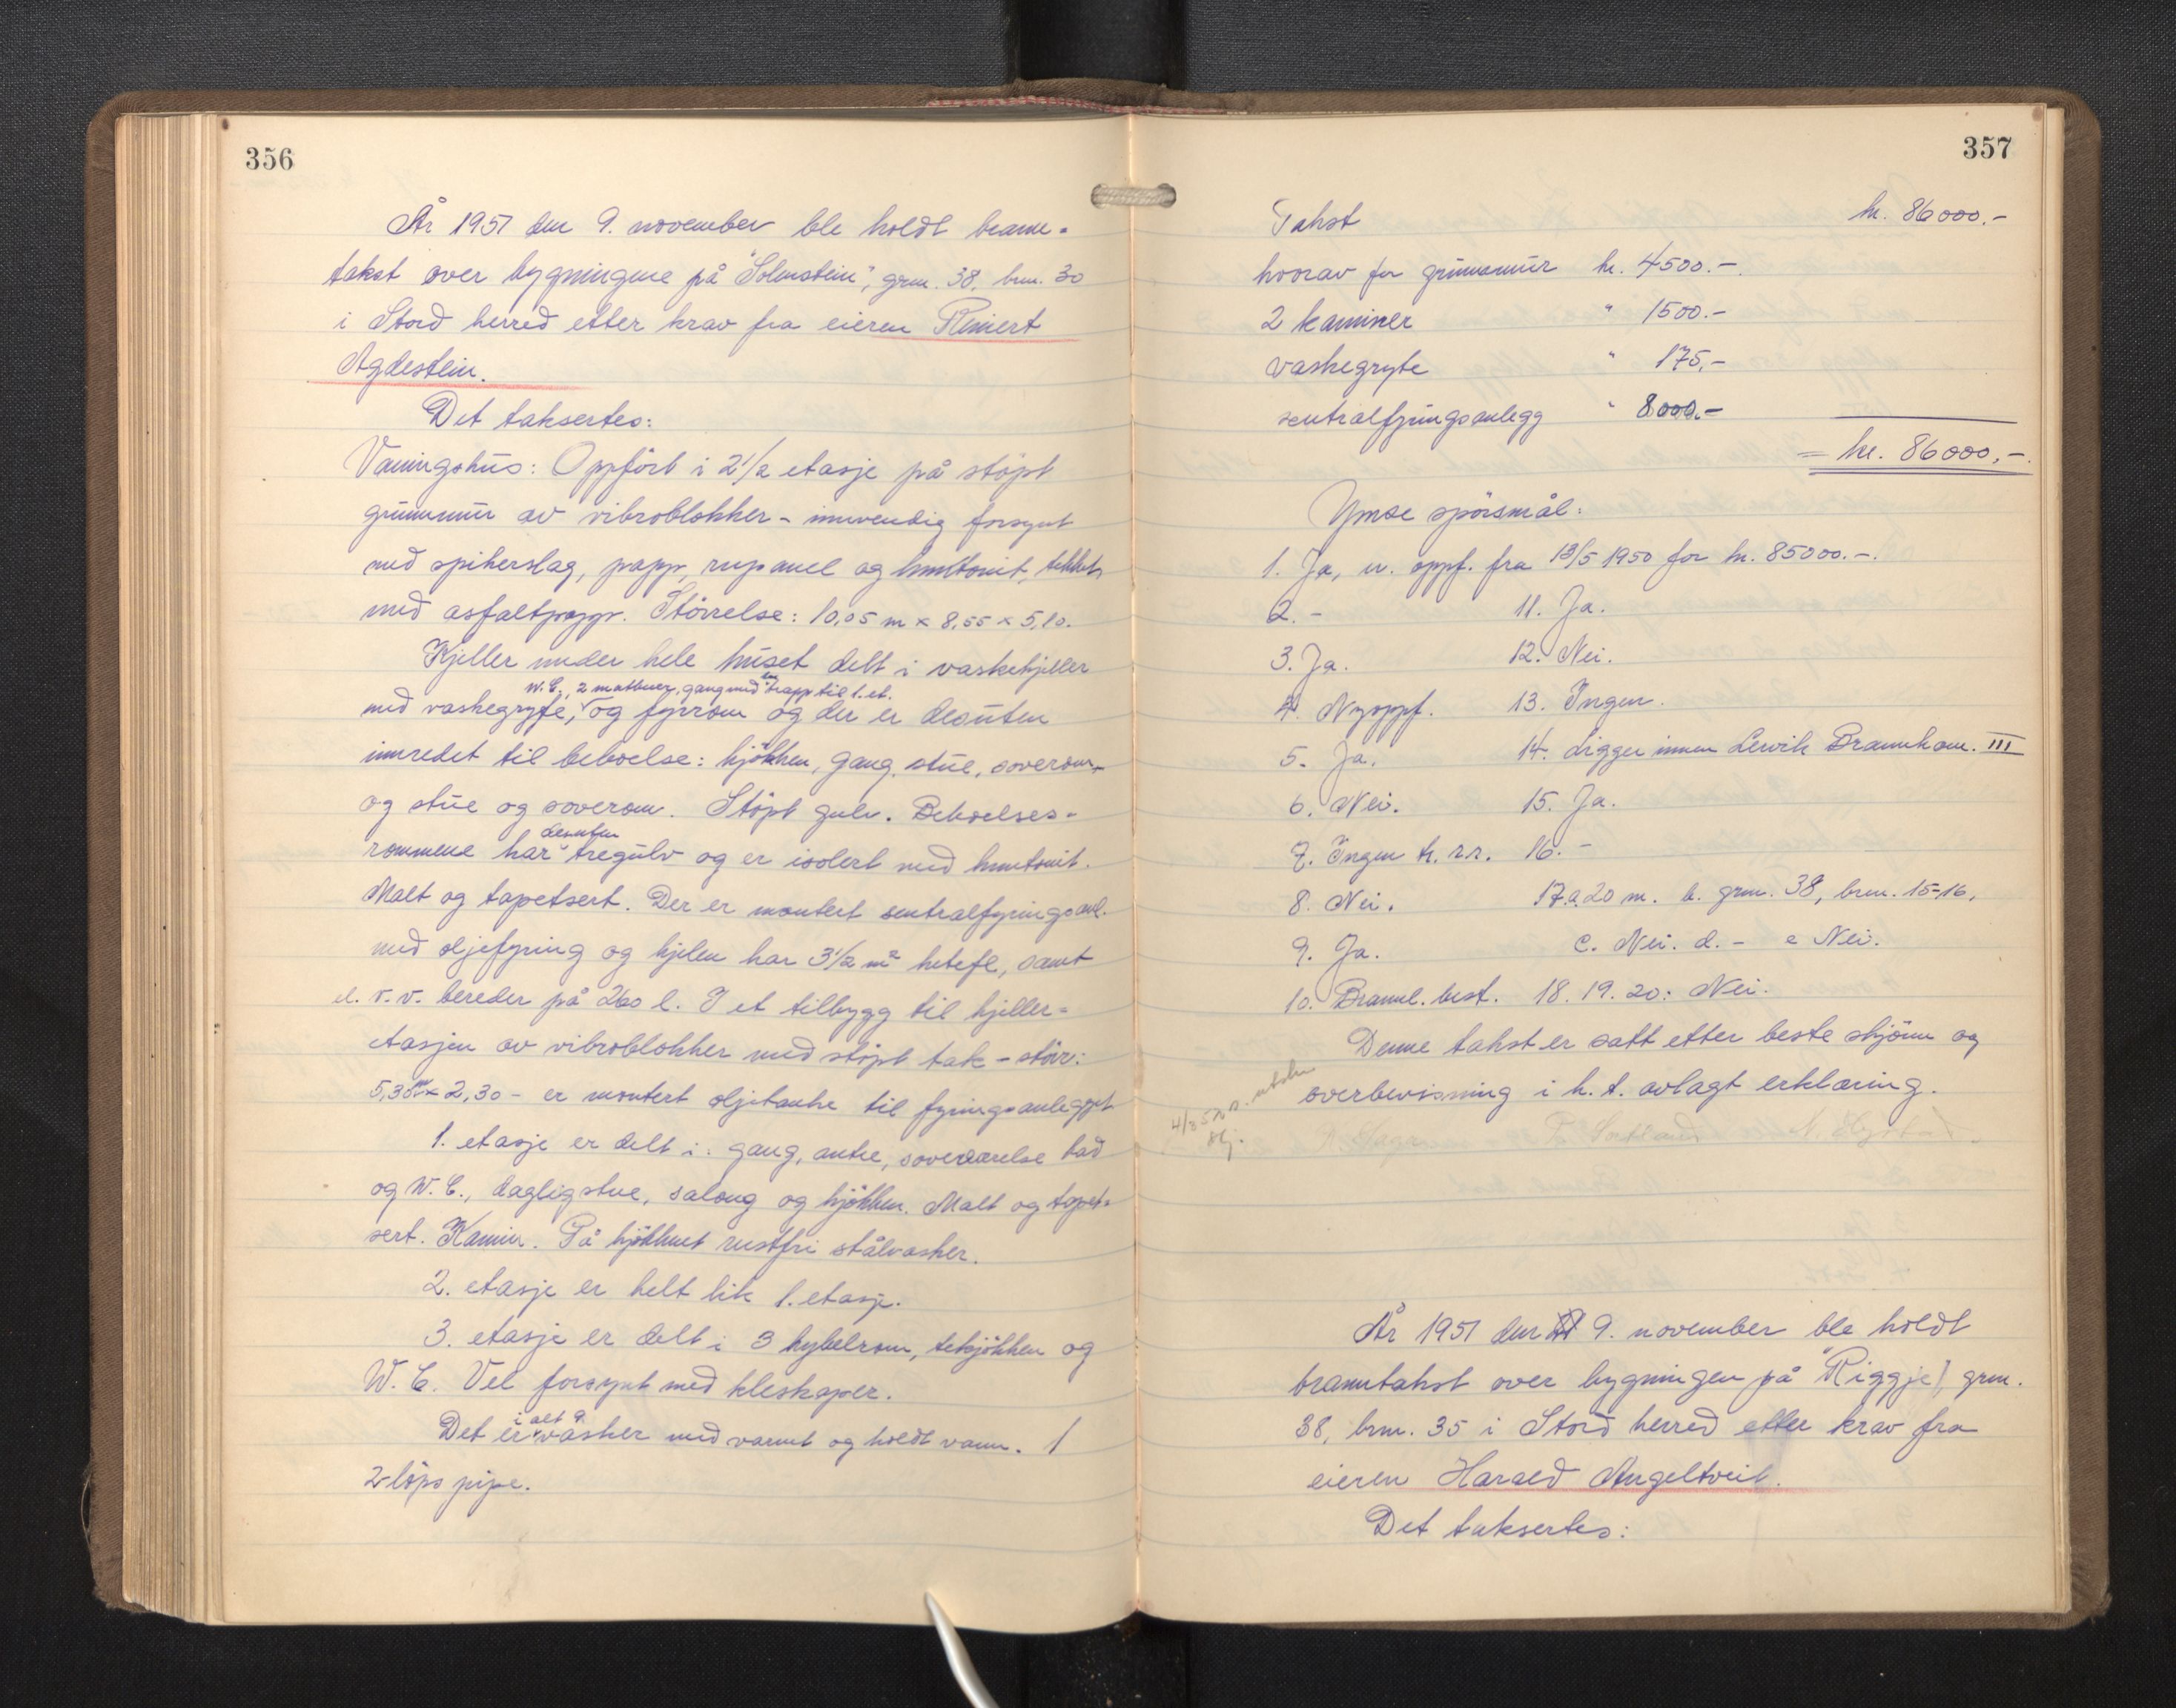 356
År 1951 den 9. november ble holdt brann-
takst over bygningene på "Solenstein", grn. 38, brn. 30
i Stord herred etter krav fra eieren Reinert
Agdestein.
Det taksertes:
Våningshus: Oppfört i 2 1/2 etasje på stöpt
grunnmur av vibroblokker - innvendig forsynt
med spikerslag, papp, rupanel og huntonit, tekket
med asfaltpapp. Störrelse: 10,05 m x 8,55 x 5,10.
Kjeller under hele huset delt i vaskekjeller
W.C., 2 matbuer, gang med trapp til 1. et.
med vaskegryte, og fyrrom og der er desuten
innredet til beboelse: kjökken, gang, stue, soverom,
og stue og soverom. Stöpt gulv. Beboelses-
desuten
rommene har tregulv og er isolert med huntonit.
Malt og tapetsert. Der er montert sentralfyringsanl.
med oljefyring og kjelen har 3 1/2 m² hetefl, samt
el. v. v. bereder på 260 l. I et tilbygg til kjeller-
etasjen av vibroblokker med stöpt tak - störr:
5,30 m x 2,30 - er montert oljetanke til fyringsanlegget
1. etasje er delt i: gang, entre, soveværelse bad
og W.C., dagligstue, salong og kjökken. Malt og tapet-
sert. Kamin. På kjökkenet rustfri stålvasker.
2. etasje er helt lik 1. etasje.
3. etasje er delt i 3 hybelrom, tekjökken og
W.C. Vel forsynt med kleskaper.
i alt 9
Det er vasker med varmt og koldt vann. 1
2 löps pipe.
357
Takst kr. 86000.-
hvorav for grunnmur kr. 4500.-
2 kaminer " 1500.-
vaskegryte " 175,-
sentralfyringsanlegg " 8000.-
= kr. 86000,-.
Ymse spörsmål:
1. Ja, u. oppf. fra 13/5 1950 for kr. 85000.-.
2. - 11. Ja.
3. Ja. 12. Nei.
4. Nyoppf. 13. Ingen.
5. Ja. 14. Ligger innen Lervik Brannkom. III
6. Nei. 15. Ja.
7. Ingen k. r.r. 16. -
8. Nei. 17. a. 20 m. b. grn. 38, brn. 15-16,
9. Ja. c. Nei. d. - e Nei.
10. Brannl. best. 18. 19. 20: Nei.
Denne takst er satt etter beste skjönn og
overbevisning i h. t. avlagt erklæring.
År 1951 den 9. november ble holdt
branntakst over bygningen på "Riggje", grn.
38, brn. 35 i Stord herred etter krav fra
eieren Harald Angeltveit.
Det taksertes: